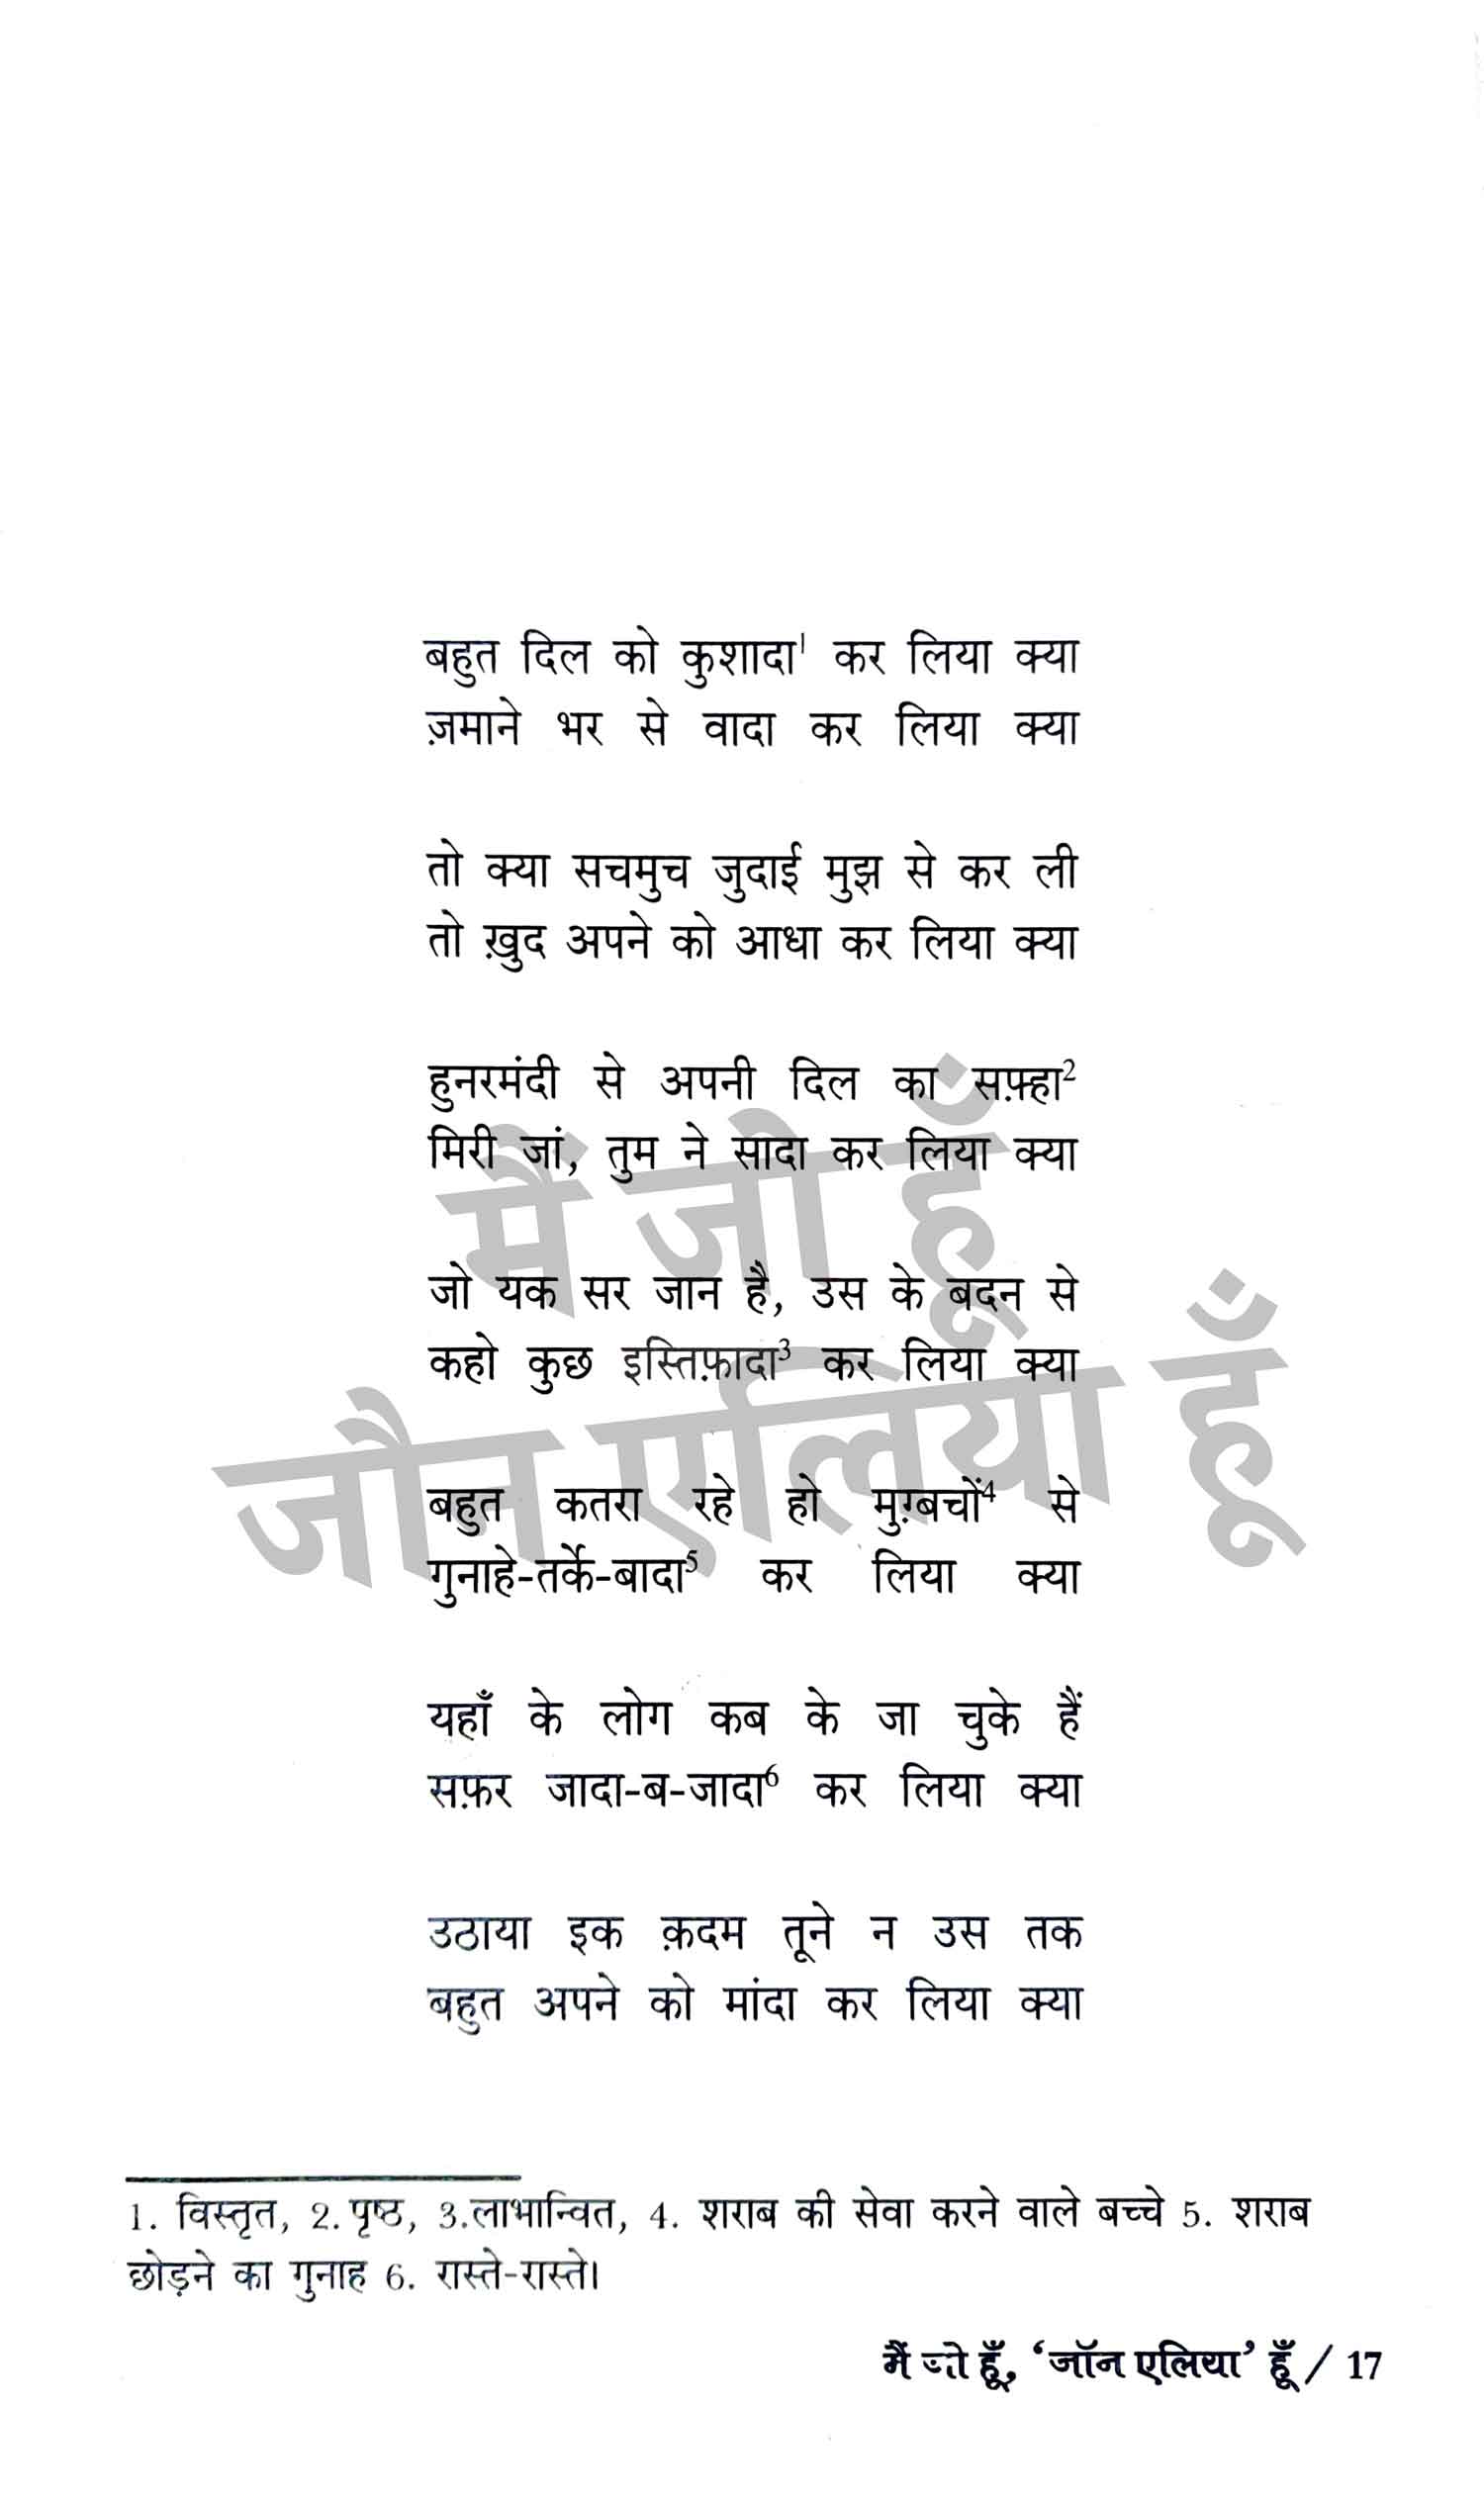 बहुत दिल को कुशादा¹ कर लिया क्या
ज़माने भर से वादा कर लिया क्या
तो क्या सचमुच जुदाई मुझ से कर ली
तो ख़ुद अपने को आधा कर लिया क्या
हुनरमंदी से अपनी दिल का सफ़्हा²
मिरी जां, तुम ने सादा कर लिया क्या
मैं जो हूँ
जो यक सर जान है, उस के बदन से
कहो कुछ इस्तिफ़ादा³ कर लिया क्या
जौन एलिया हूँ
बहुत कतरा रहे हो मुग़्बचों⁴ से
गुनाहे-तर्के-बादा⁵ कर लिया क्या
यहाँ के लोग कब के जा चुके हैं
सफ़र जादा-ब-जादा⁶ कर लिया क्या
उठाया इक क़दम तूने न उस तक
बहुत अपने को मांदा कर लिया क्या
1. विस्तृत, 2. पृष्ठ, 3.लाभान्वित, 4. शराब की सेवा करने वाले बच्चे 5. शराब
छोड़ने का गुनाह 6. रास्ते-रास्ते।
मैं जो हूँ, ‘जॉन एलिया’ हूँ / 17